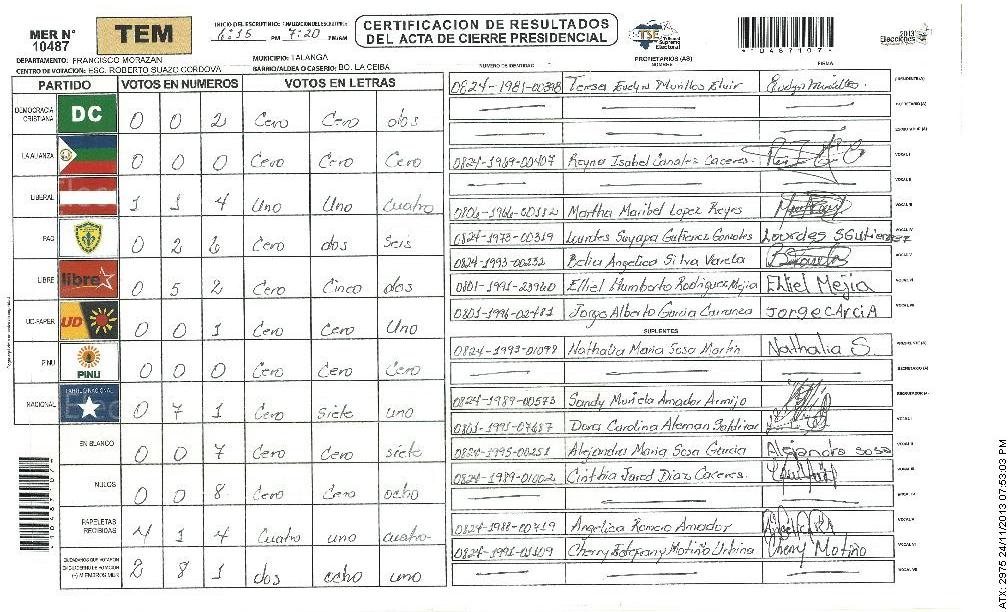 MER N° 10487
TEM
INICIO DEL ESCRUTINIO: 6:15 PM 7:20 PM/AM
CERTIFICACION DE RESULTADOS
DEL ACTA DE CIERRE PRESIDENCIAL
TSE Tribunal Supremo Electoral
*0487107*
2013 Elecciones
DEPARTAMENTO: FRANCISCO MORAZAN MUNICIPIO: TALANGA
CENTRO DE VOTACION: ESC. ROBERTO SUAZO CORDOVA BARRIO/ALDEA O CASERIO: BO. LA CEIBA
PARTIDO VOTOS EN NUMEROS VOTOS EN LETRAS
DEMOCRACIA CRISTIANA DC 0 0 2 Cero Cero dos
LA ALIANZA 0 0 0 Cero Cero Cero
LIBERAL 1 1 4 Uno Uno Cuatro
PAC 0 2 2 Cero dos Seis
LIBRE libre 0 5 2 Cero Cinco dos
UD-FAPER UD 0 0 1 Cero Cero Uno
PINU PINU 0 0 0 Cero Cero Cero
NACIONAL PARTIDO NACIONAL 0 7 1 Cero Siete uno
EN BLANCO 0 0 7 Cero Cero siete
NULOS 0 0 8 Cero Cero ocho
PAPELETAS RECIBIDAS 4 1 4 Cuatro uno cuatro
CIUDADANOS QUE VOTARON 2 8 1 dos ocho uno
PROPIETARIOS (AS)
NUMERO DE IDENTIDAD NOMBRE FIRMA
0824-1981-00398 Teresa Evelyn Murillos Elvir Evelyn Murillos. PRESIDENTE(A)
SECRETARIO (A)
ESCRUTADOR (A)
0824-1969-00407 Reyna Isabel Canales Caceres. VOCAL I
VOCAL II
0806-1966-00182 Martha Maribel Lopez Reyes VOCAL III
0824-1973-00319 Lourdes Suyapa Gutierez Gonzales Lourdes SGutierrez VOCAL IV
0824-1993-00232 Belia Angelica Silva Varela VOCAL V
0801-1991-23960 Ethel Humberto Rodriguez Mejia Ethel Mejia VOCAL VI
0801-1996-02481 Jorge Alberto Garcia Carranza Jorge GArciA VOCAL VII
SUPLENTES
0824-1993-01099 Nathalia Maria Sosa Martin Nathalia S. PRESIDENTE (A)
SECRETARIO (A)
0824-1989-00573 Sandy Mariela Amador Armijo ESCRUTADOR (A)
0801-1991-07687 Dora Carolina Aleman Saldivar VOCAL I
0824-1995-00251 Alejandra Maria Sosa Garcia Alejandra Sosa VOCAL II
0824-1989-01002 Cinthia Jared Diaz Caceres. VOCAL III
VOCAL IV
0824-1988-00719 Angelica Romero Amador VOCAL V
0824-1991-01109 Cherry Estefany Motiño Urbina Cherry Motiño VOCAL VI
VOCAL VII
ATX: 2975 24/11/2013 07:53:03 PM